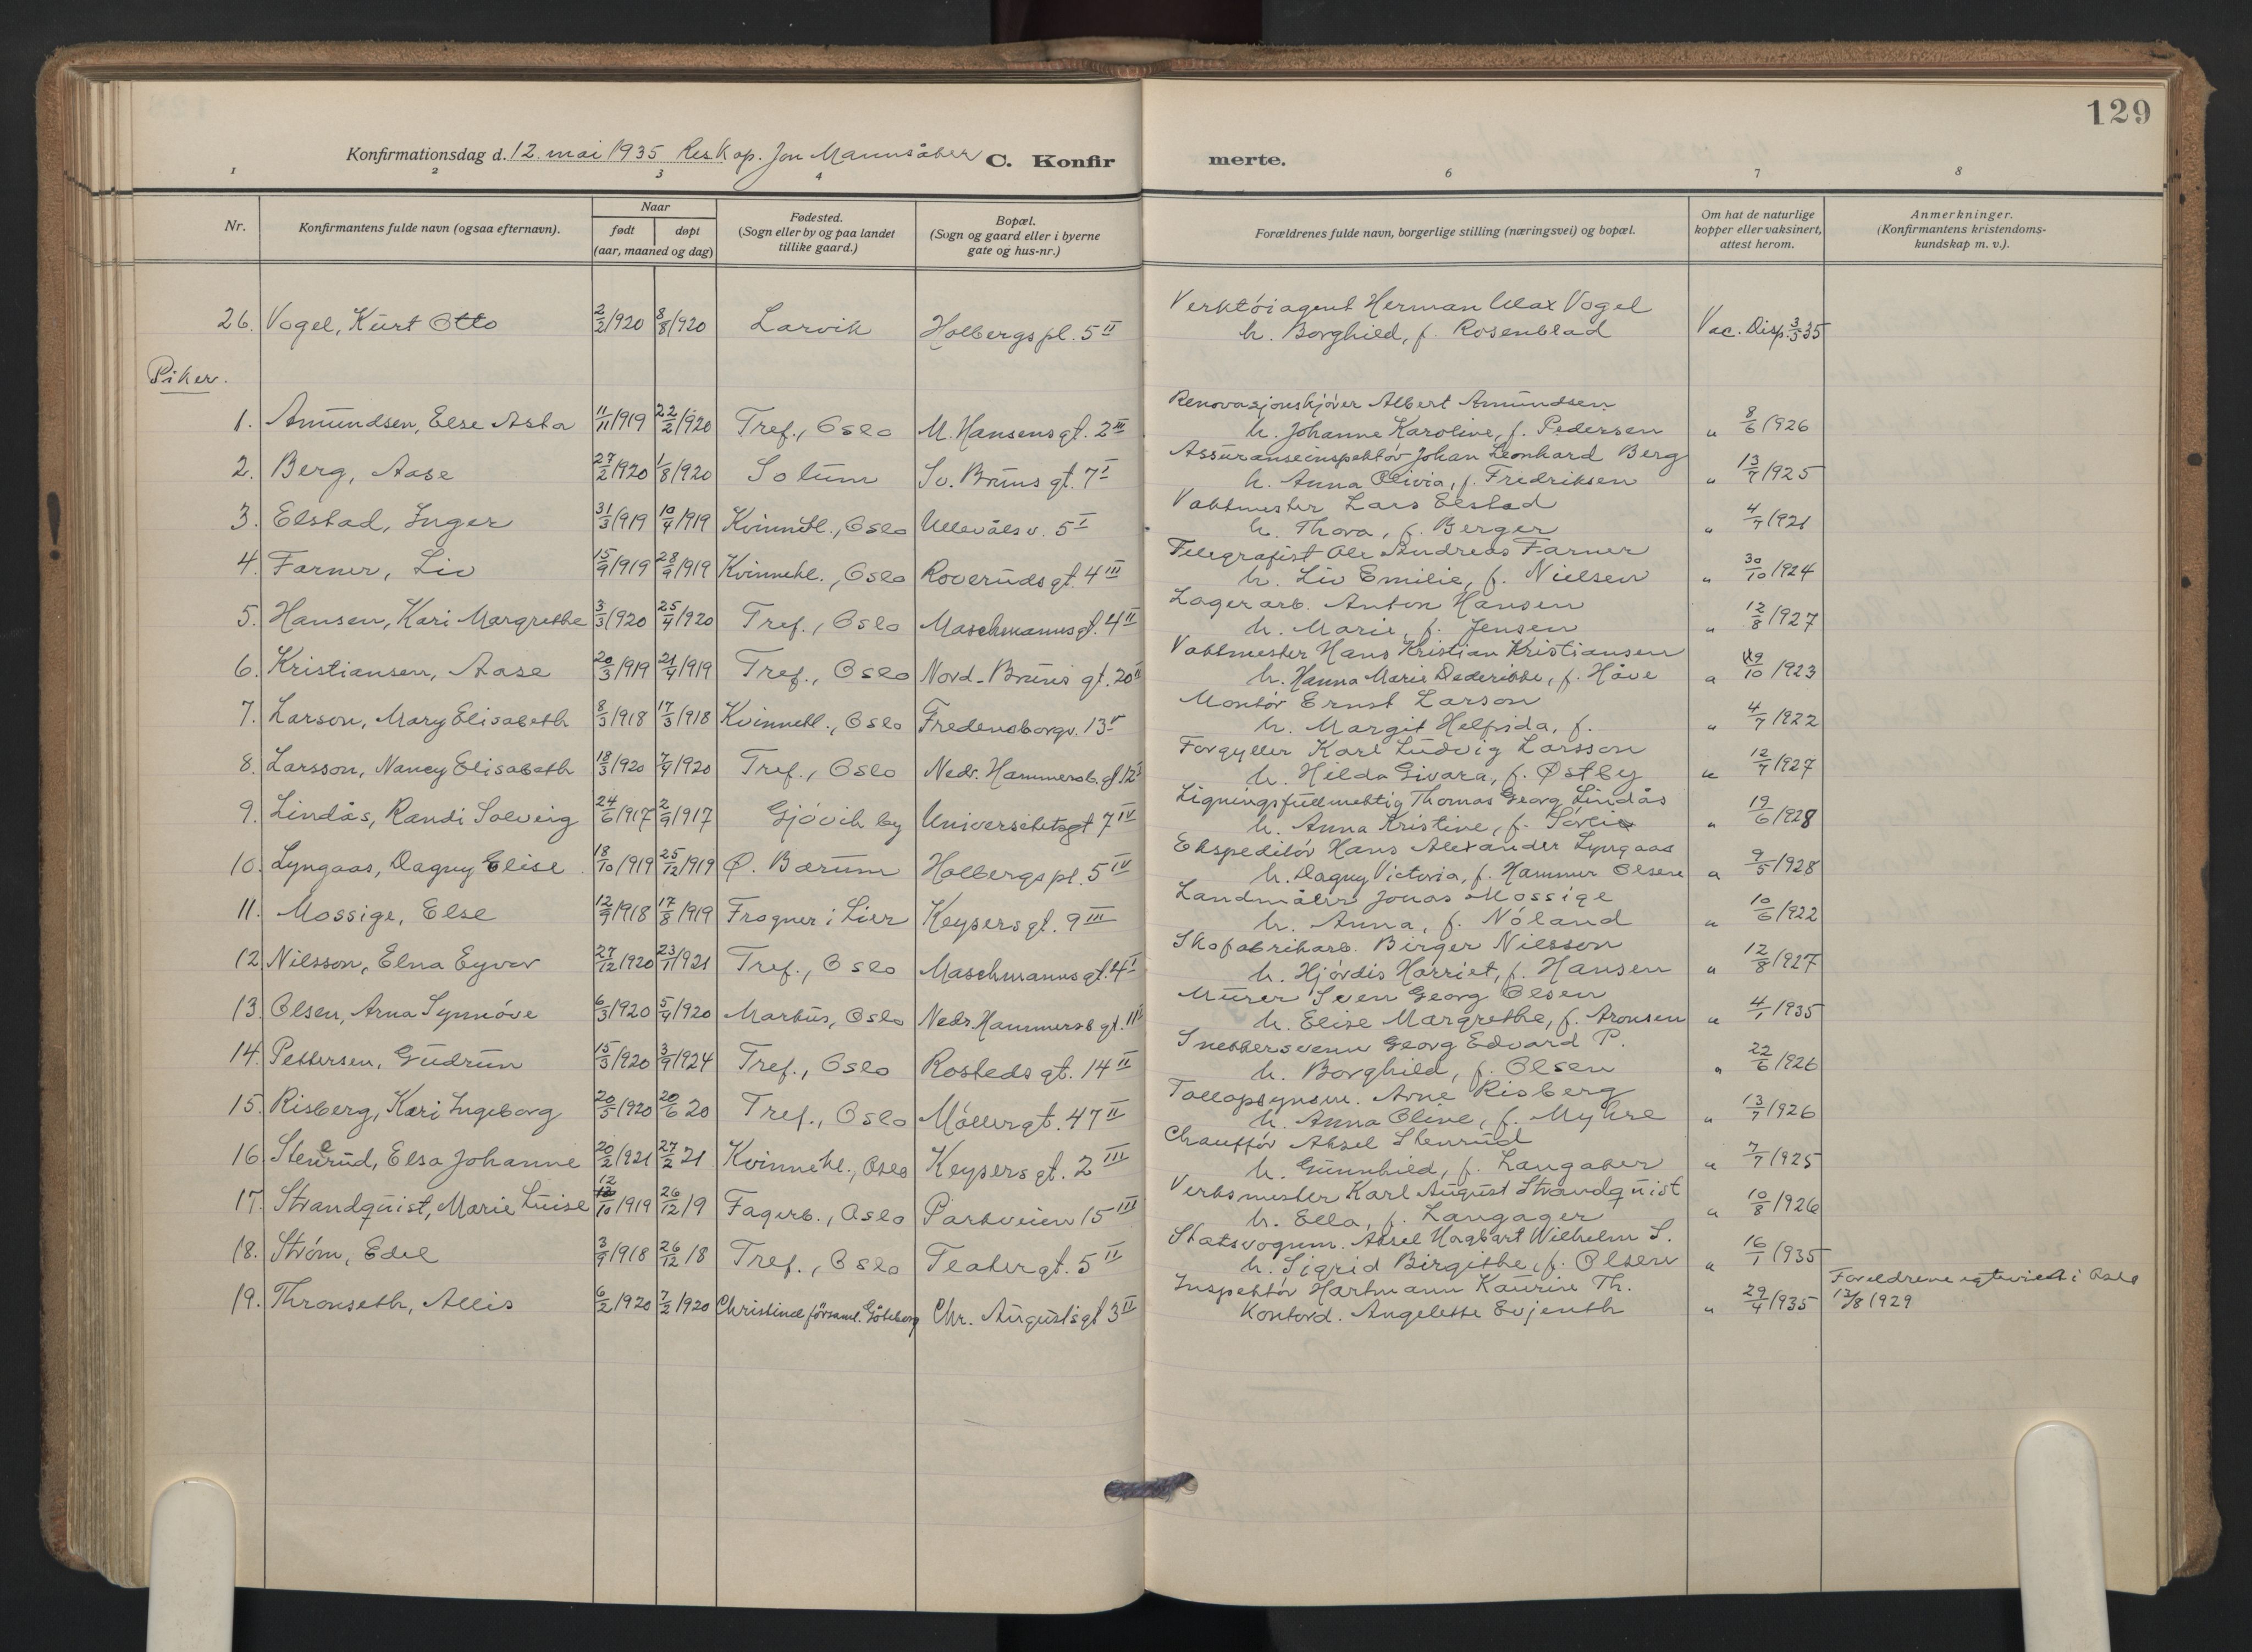 129
Konfirmationsdag d. 12. mai 1935 Res. kap. Jon Mannsåker C. Konfir merte.
1 2 3 4 6 7 8
Nr. Konfirmantens fulde navn (ogsaa efternavn). Naar født døpt (aar, maaned og dag) Fødested. (Sogn eller by og paa landet tillike gaard.) Bopæl. (Sogn og gaard eller i byerne gate og hus-nr.) Forældrenes fulde navn, borgerlige stilling (næringsvei) og bopæl. Om hat de naturlige kopper eller vaksinert, attest herom. Anmerkninger. (Konfirmantens kristendoms-kundskap m. v.).
Verktöiagent Herman Max Vogel
26. Vogel, Kurt Otto 2/2 1920 8/8 1920 Larvik Holbergs pl. 5 II h. Borghild, f. Rosenblad Vac. Disp. 3/5 35
Piker.
Renovasjonskjörer Albert Amundsen
1. Amundsen, Else Asta 11/11 1919 22/2 1920 Tref., Oslo M. Hansens gt. 2 III h. Johanne Karoline, f. Pedersen " 8/6 1926
Assuranseinspektör Johan Leonhard Berg
2. Berg, Aase 27/2 1920 1/8 1920 Solum Sv. Bruns gt. 7 I h. Anna Olivia, f. Fredriksen " 13/7 1925
Vaktmester Lars Elstad
3. Elstad, Inger 31/3 1919 10/4 1919 Kvinnekl., Oslo Ullevålsv. 5 I h. Thora, f. Berger " 4/7 1921
Telegrafist Ole Andreas Farner
4. Farner, Liv 15/9 1919 28/9 1919 Kvinnekl., Oslo Roveruds gt. 4 III h. Liv Emilie, f. Nielsen " 30/10 1924
Lagerarb. Anton Hansen
5. Hansen, Kari Margrethe 3/3 1920 25/4 1920 Tref., Oslo Maschmanns gt. 4 II h. Marie, f. Jensen " 12/8 1927
Vaktmester Hans Kristian Kristiansen
6. Kristiansen, Aase 20/3 1919 21/4 1919 Tref., Oslo Nord. Bruns gt. 20 II h. Hanna Marie Dederikke, f. Håve " 19/10 1923
Montör Ernst Larson
7. Larson, Mary Elisabeth 8/3 1918 17/3 1918 Kvinnekl., Oslo Fredensborgv. 13 V h. Margit Helfrida, f. " 4/7 1922
Forgyller Karl Ludvig Larsson
8. Larsson, Nancy Elisabeth 18/3 1920 7/4 1920 Tref., Oslo Nedr. Hammersb. gt. 12 I h. Hilda Givara, f. Østby " 12/7 1927
Ligningsfullmektig Thomas Georg Lindås
9. Lindås, Randi Solveig 24/6 1917 2/9 1917 Gjövik by Universitetsgt 7 IV h. Anna Kristine, f. Sörlie " 19/6 1928
Ekspeditör Hans Alexander Lyngaas
10. Lyngaas, Dagny Elise 18/10 1919 25/12 1919 Ø. Bærum Holbergs pl. 5 IV h. Dagny Victoria, f. Hammer Olsen " 9/5 1928
Landmåler Jonas Mossige
11. Mossige, Else 12/9 1918 17/8 1919 Frogner i Lier Keysers gt. 9 III h. Anna, f. Nöland " 10/6 1922
Skofabrikarb. Birger Nilsson
12. Nilsson, Elna Eyvor 27/12 1920 23/1 1921 Tref., Oslo Maschmanns gt. 4 I h. Hjördis Harriet, f. Hansen " 12/8 1927
Murer Sven Georg Olsen
13. Olsen, Arna Synnöve 6/3 1920 5/4 1920 Markus, Oslo Nedr. Hammersb gt. 11 I h. Elise Margrethe, f. Aronsen " 4/1 1935
Snekkersvenn Georg Edvard P.
14. Pettersen, Gudrun 15/3 1920 3/9 1924 Tref., Oslo Rosteds gt. 14 II h. Borghild, f. Olsen " 22/6 1926
Tollopsynsm. Arne Risberg
15. Risberg, Kari Ingeborg 20/5 1920 20/6 20 Tref., Oslo Möllergt. 47 II h. Anna Oline, f. Myhre " 13/7 1926
Chauffør Aksel Stenrud
16. Stenerud, Elsa Johanne 20/2 1921 27/2 21 Kvinnekl., Oslo Keysers gt. 2 III h. Gunnhild, f. Langaker " 7/7 1925
Verksmester Karl August Strandquist
17. Strandquist, Marie Luise 12/10 1919 26/12 19 Fagerb., Oslo Parkveien 15 III h. Ella, f. Langager " 10/8 1926
Statsvognm. Aksel Hagbart Wilhelm S.
18. Ström, Edel 3/9 1918 26/12 18 Tref., Oslo Teatergt. 5 II h. Sigrid Birgithe, f. Olsen " 16/1 1935
Inspektör Hartmann Kaurin Th. Foreldrene egteviet i Oslo
19. Thronseth, Allis 6/2 1920 7/2 1920 Christinæ församl. Göteborg Chr. Augusts gt 3 II Kontord. Angelette Evjenth " 29/4 1935 12/8 1929